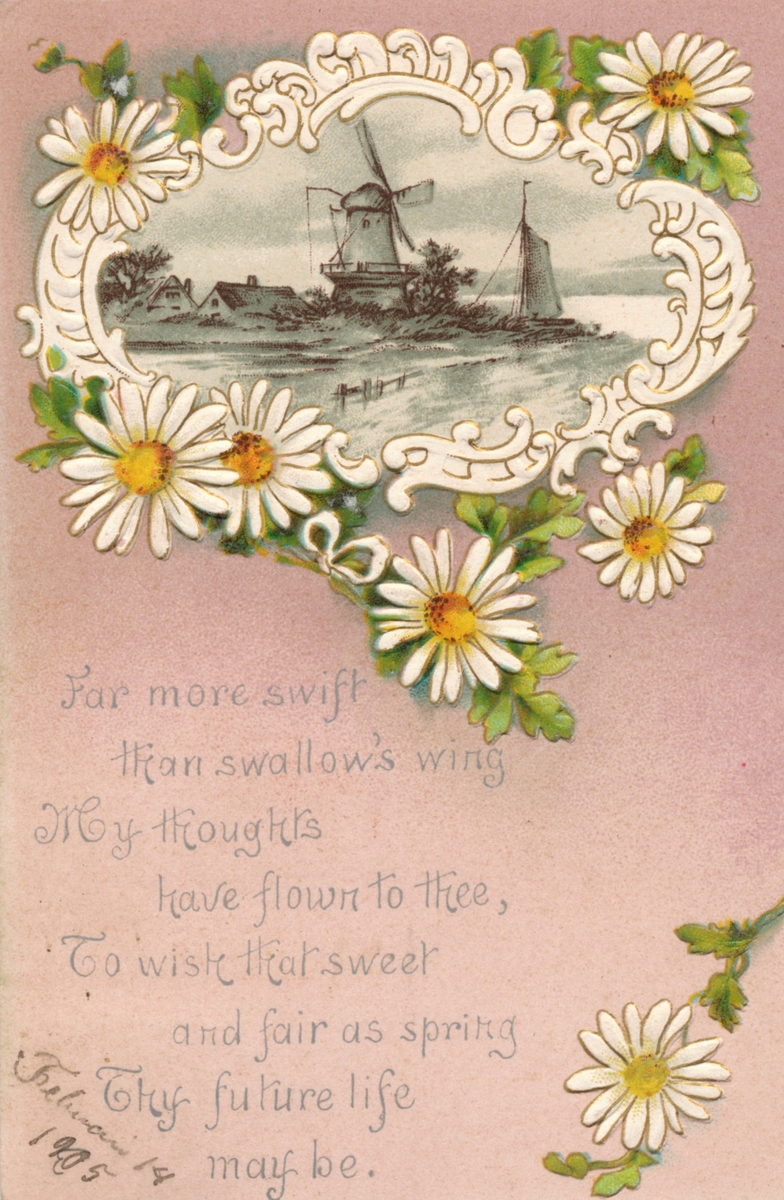 Far more swift
than swallow's wing
My thoughts
have flown to thee,
To wish that sweet
and fair as spring
Thy future life
may be.
14
1905